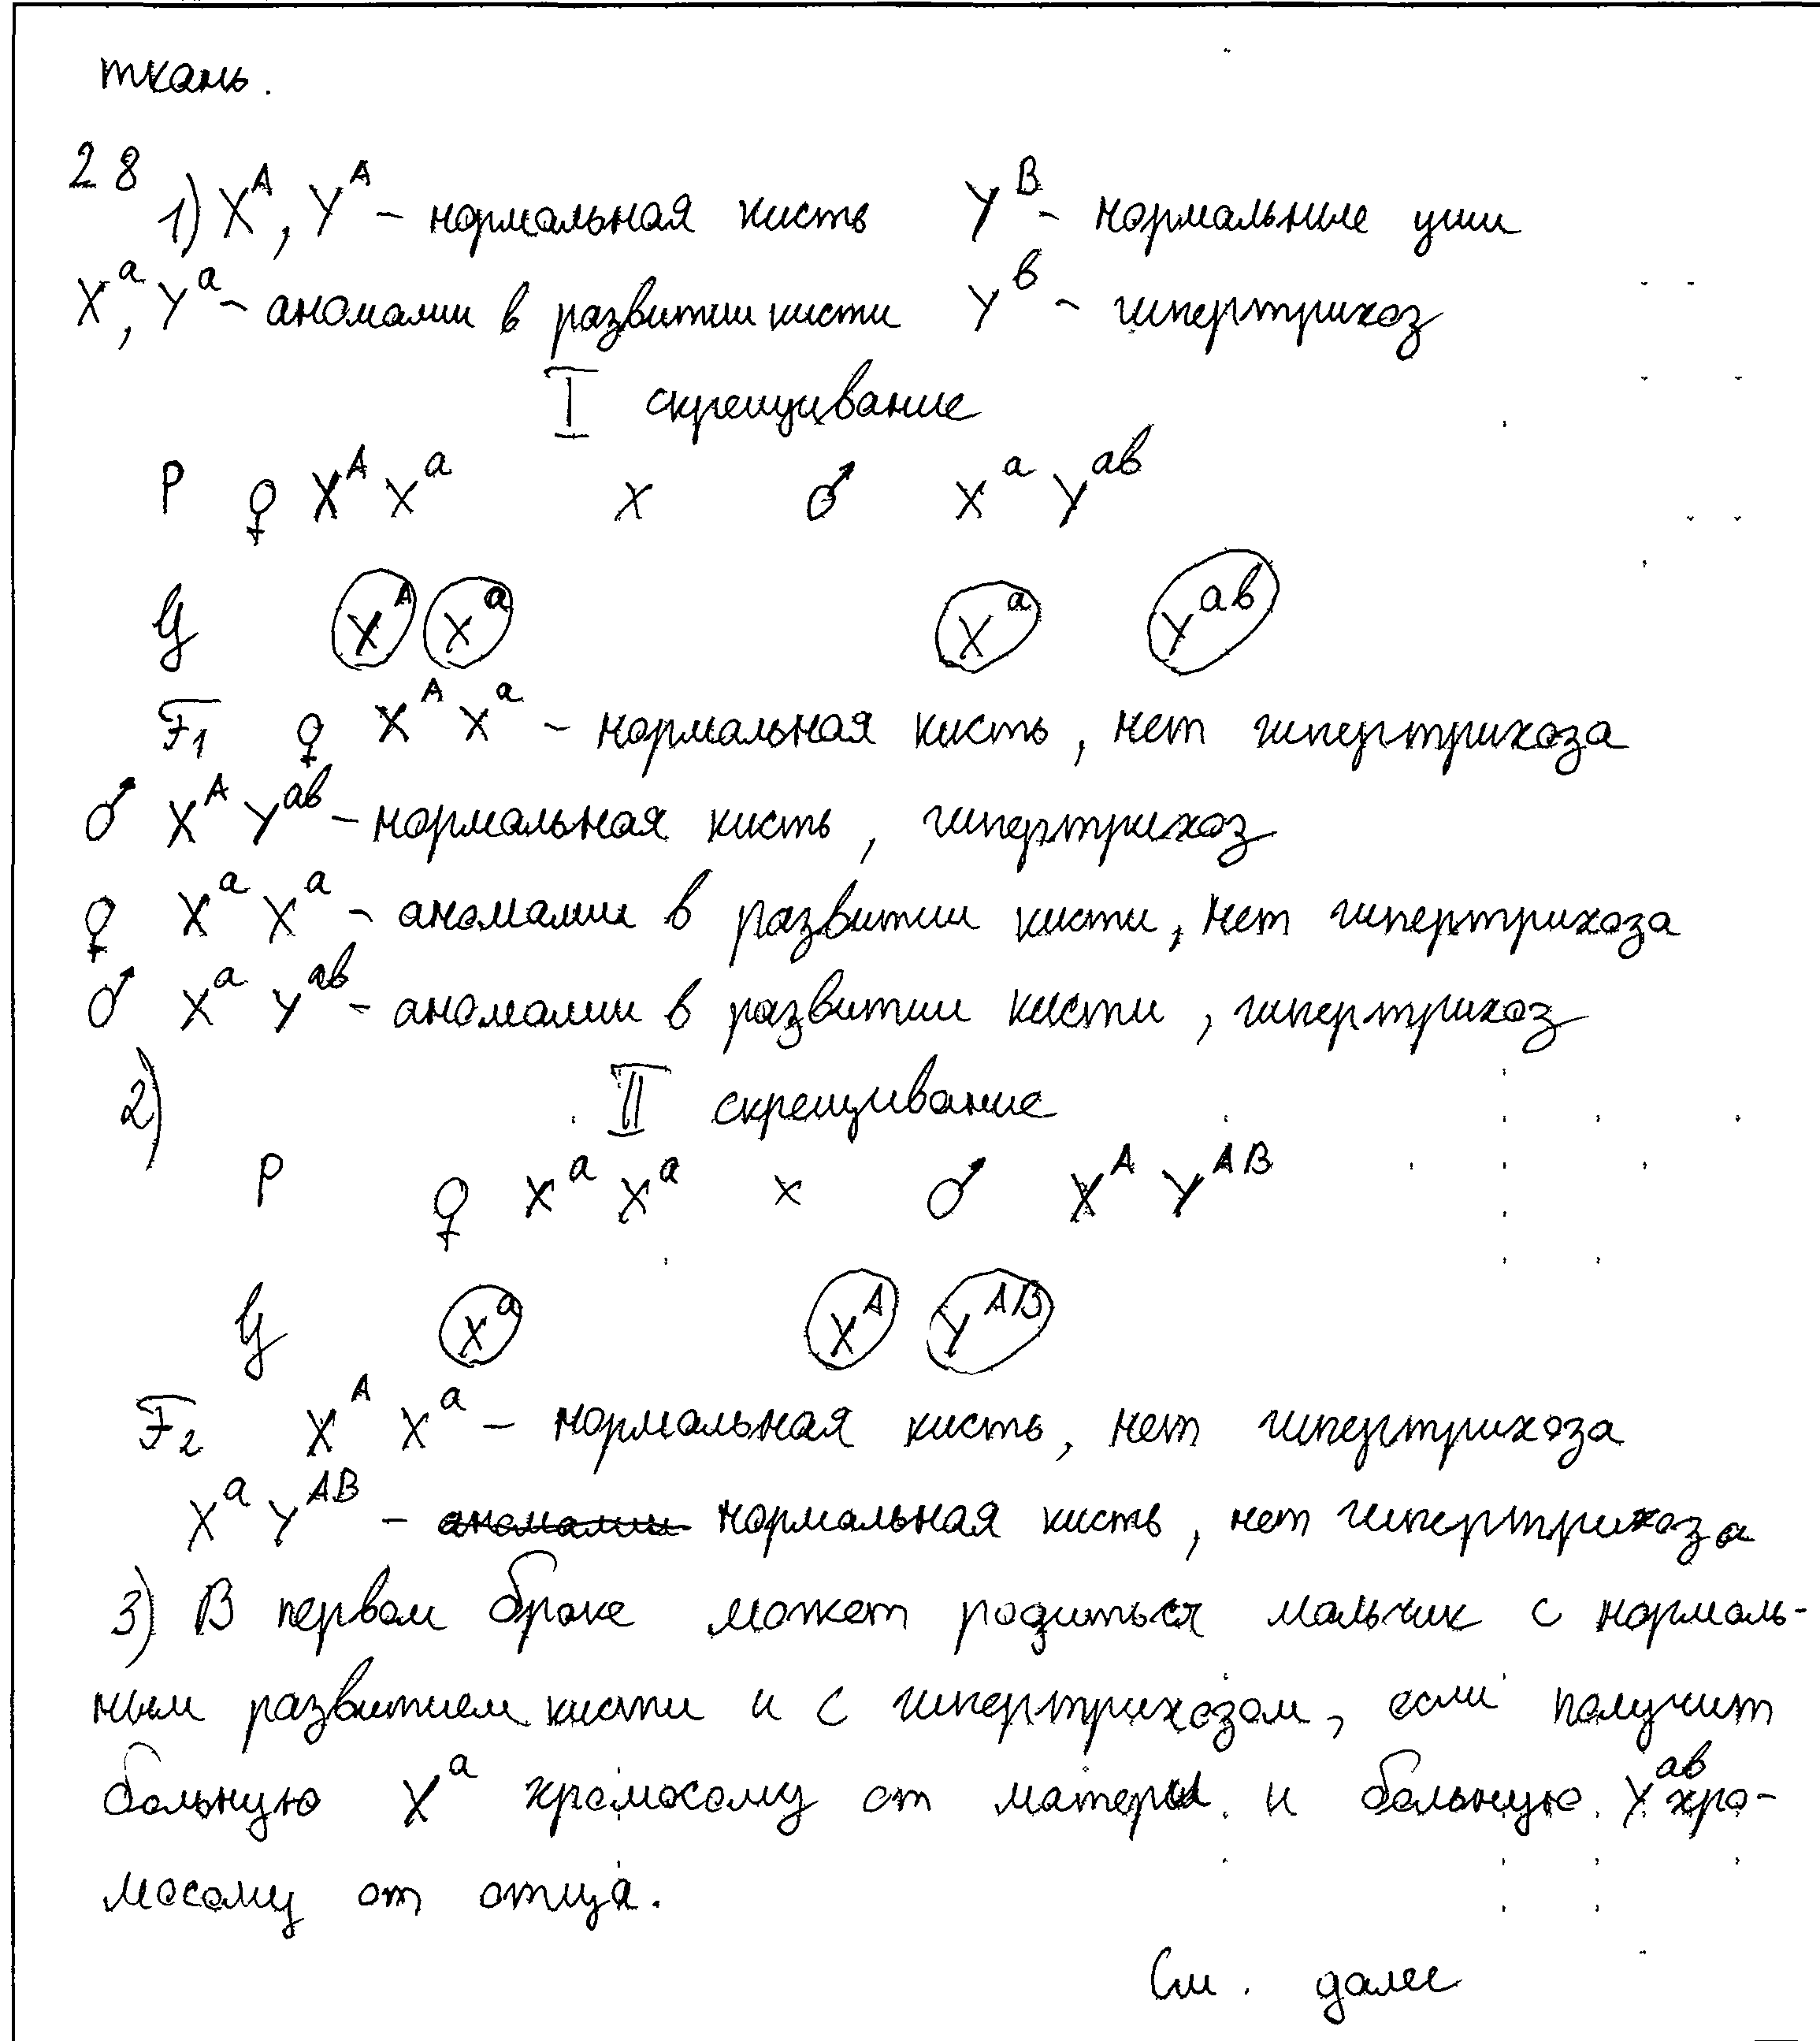 ткань.
28 1) X^A, Y^A – нормальная кисть Y^B – нормальные уши
X^a, Y^a – аномалии в развитии кисти Y^b – гипертрихоз
I скрещивание
P ♀ X^A X^a x ♂ X^a Y^ab
G X^A X^a X^a Y^ab
F1 ♀ X^A X^a – нормальная кисть, нет гипертрихоза
♂ X^A Y^ab – нормальная кисть, гипертрихоз
♀ X^a X^a – аномалии в развитии кисти, нет гипертрихоза
♂ X^a Y^ab – аномалии в развитии кисти, гипертрихоз
2) II скрещивание
P ♀ X^a X^a x ♂ X^A Y^AB
G X^a X^A Y^AB
F2 X^A X^a – нормальная кисть, нет гипертрихоза
X^a Y^AB – аномалии нормальная кисть, нет гипертрихоза
3) В первом браке может родиться мальчик с нормаль-
ным развитием кисти и с гипертрихозом, если получит
больную X^a хромосому от матери и больную Y^ab хро-
мосому от отца.
См. далее